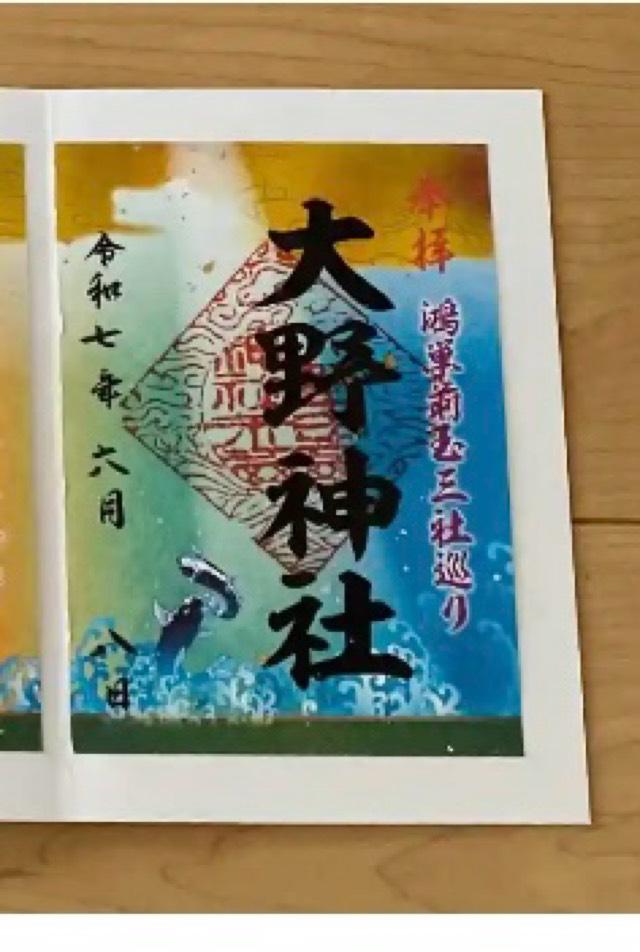 奉拝
鴻巣前玉三社巡り
大野神社
令和七年 六月 八日